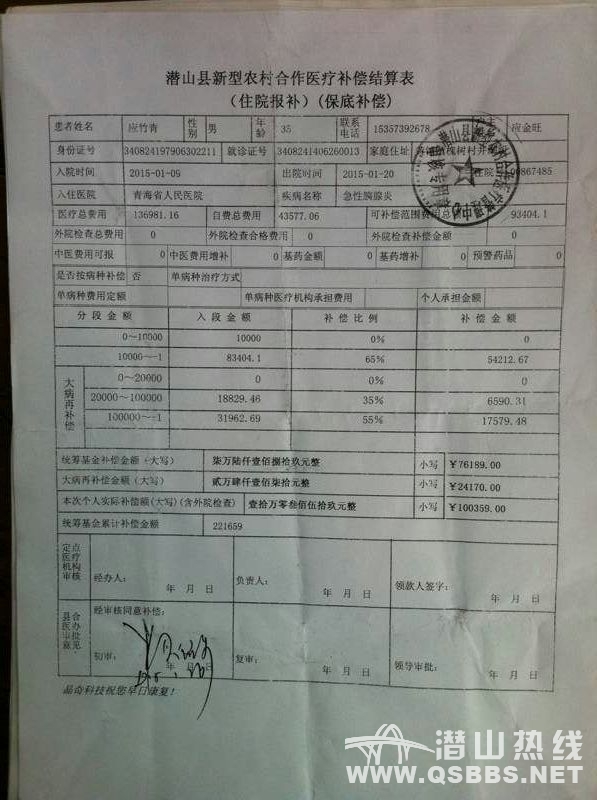 潜山县新型农村合作医疗补偿结算表
（住院报补）(保底补偿)
患者姓名 应竹青 性别 男 年龄 35 联系电话 15357392678 应金旺
身份证号 340824197906302211 就诊证号 3408241406260013 家庭住址
入院时间 2015-01-09 出院时间 2015-01-20 住院 00867485
入住医院 青海省人民医院 疾病名称 急性胰腺炎
医疗总费用 136981.16 自费总费用 43577.06 可补偿范围费用总额 93404.1
外院检查总费用 0 外院检查合格费用 0 外院检查补偿金额 0
中医费用可报 0 中医费用增补 0 基药金额 0 基药增补 0 预警药品 0
是否按病种补偿 否 单病种治疗方式
单病种费用定额 单病种医疗机构承担费用 个人承担金额
分段金额 入段金额 补偿比例 补偿金额
0～10000 10000 0% 0
10000～-1 83404.1 65% 54212.67
大病再补偿
0～20000 0 0% 0
20000～100000 18829.46 35% 6590.31
100000～-1 31962.69 55% 17579.48
统筹基金补偿金额（大写） 柒万陆仟壹佰捌拾玖元整 小写 ￥76189.00
大病再补偿金额（大写） 贰万肆仟壹佰柒拾元整 小写 ￥24170.00
本次个人实际补偿额(大写)(含外院检查) 壹拾万零叁佰伍拾玖元整 小写 ￥100359.00
统筹基金累计补偿金额 221659
定点医疗机构审核 经办人： 年 月 日 负责人： 年 月 日 领款人签字： 年 月 日
县合医办审批意见 经审核同意补偿：
初审： 年 月 日 复审： 年 月 日 领导审批： 年 月 日
晶奇科技祝您早日康复！
潜山热线
WWW.QSBBS.NET